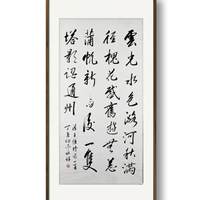 雲光水色潞河秋滿
徑槐花感舊遊無恙
蒲帆新雨後一隻
塔影認通州